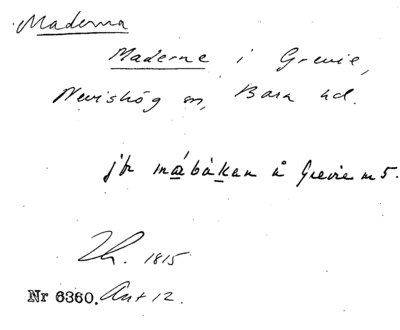 Maderna
Maderne i Grevie,
Nevishög sn, Bara hd.
jfr måbåkan å Grevie nr 5.
1815
Nr 6360. Ant 12.